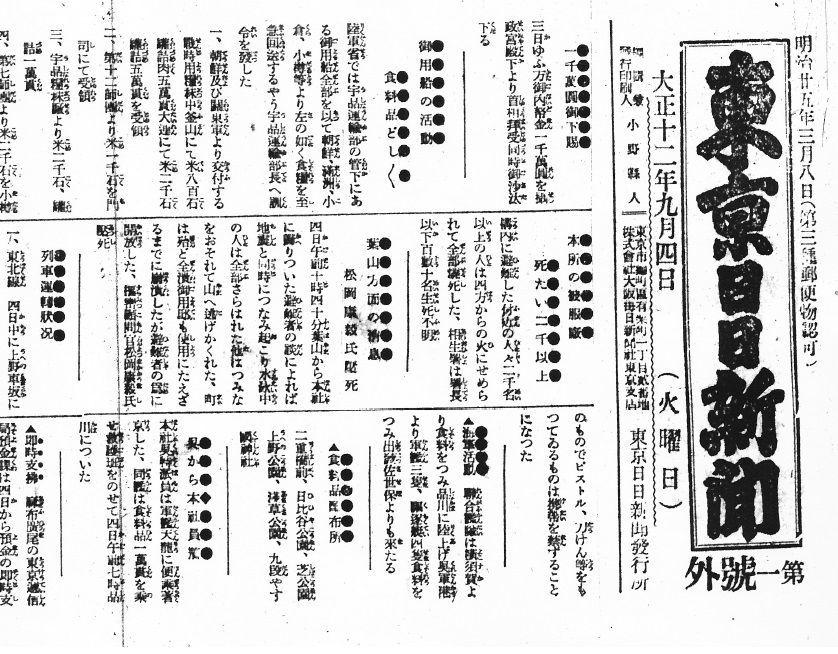 明治廿五年三月八日(第三種郵便物認可)
東京日日新聞
第一號外
大正十二年九月四日
(火曜日)
發行印刷人 小野縣人
株式會社大阪毎日新聞社東京支店
東京日日新聞發行所
一千萬圓御下賜
三日ゆふ方御内帑金一千萬圓を攝
政宮殿下より首相拜受同時御沙汰
下る
御用船の活動
食料品どし〳〵
陸軍省では宇品運輸部の管下にあ
る御用船全部を以て朝鮮、滿洲、小
倉、小樽等より左の如く食糧を至
急回送するやう宇品運輸部長へ訓
令を發した
一、朝鮮及び關東軍より交付する
戰時用糧秣中釜山にて米八百石
罐詰肉五萬貫大連にて米二千石
罐詰五萬貫を受領
二、第十二師團より米一千石を門
司にて受領
三、宇品糧秣廠より米二千石、罐
詰一萬貫
四、第七師團より米二千石を小樽
本所の被服廠
死たい二千以上
構内に避難した付近の人々二千名
以上の人は四方からの火にせめら
れて全部燒死した、相生署は署長
以下百數十名生死不明
葉山方面の消息
松岡康毅氏壓死
四日午前十時四十分葉山から本社
に歸りついた避難者の談によれば
地震と同時につなみ起こり水泳中
の人は全部さらはれた他はつなみ
をおそれて山へ逃げかくれた、町
は殆ど全潰御用邸も使用にたへざ
るまでに崩潰したが避難者の爲に
開放した、樞密顧問官松岡康毅氏
壓死
列車運轉狀況
一、東北線 四日中に上野車坂に
のものでピストル、刀けん等をも
つてゐるものは携帶を禁することに
なつた
▲海軍活動 聯合艦隊は横須賀よ
り食料をつみ品川に陸上げ呉軍港
より軍艦三隻、驅逐艦四隻食料を
つみ出發佐世保よりも來たる
▲食料品配布所
二重橋前、日比谷公園、芝公園
上野公園、淺草公園、九段やす
國神社
呉から本社員着
本社呉特派員は軍艦天龍に便乘着
京した、同艦は食料品一萬貫を乘
せ
のせて四日午前七時品
川についた
▲即時支拂 麻布廣尾の東京遞信
局預金課は四日から預金の即時支